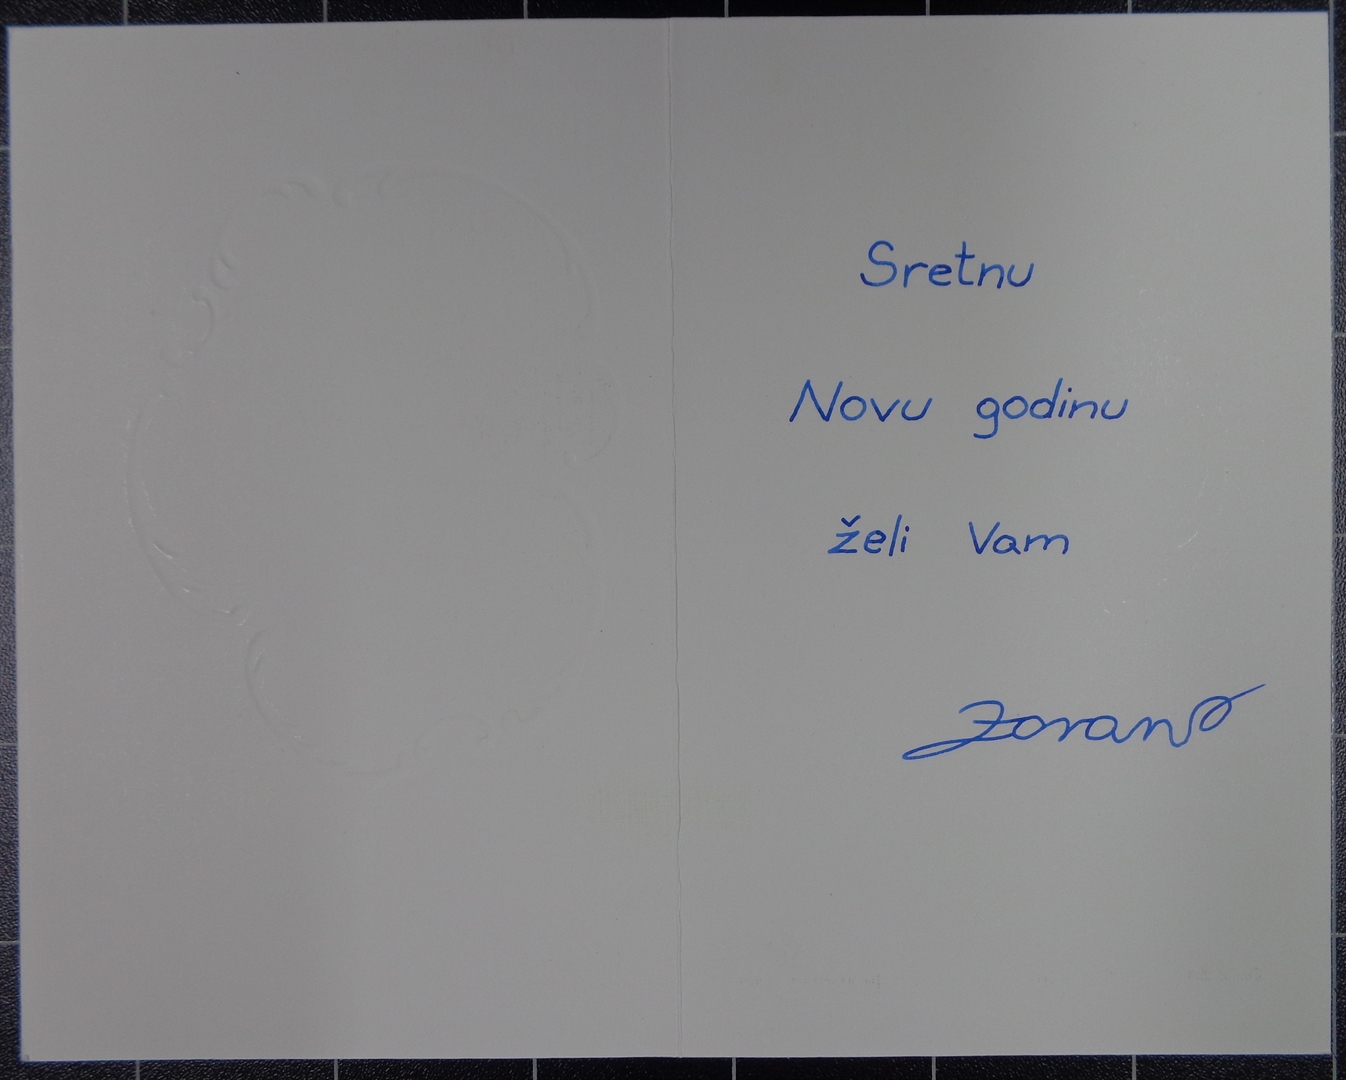 Sretnu
Novu godinu
želi Vam
Zoran